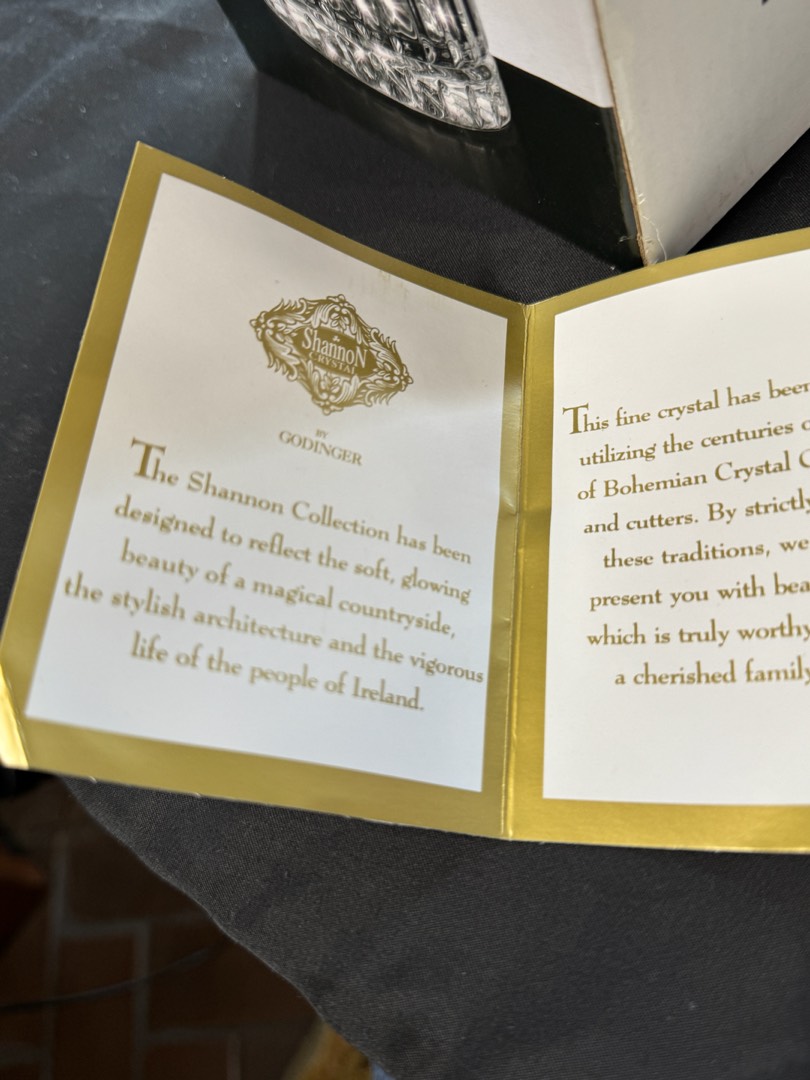 The
Shannon
CRYSTAL
BY
GODINGER
The Shannon Collection has been
designed to reflect the soft, glowing
beauty of a magical countryside,
the stylish architecture and the vigorous
life of the people of Ireland.
This fine crystal has been
utilizing the centuries
of Bohemian Crystal
and cutters. By strictly
these traditions, we
present you with
which is truly worthy
a cherished family